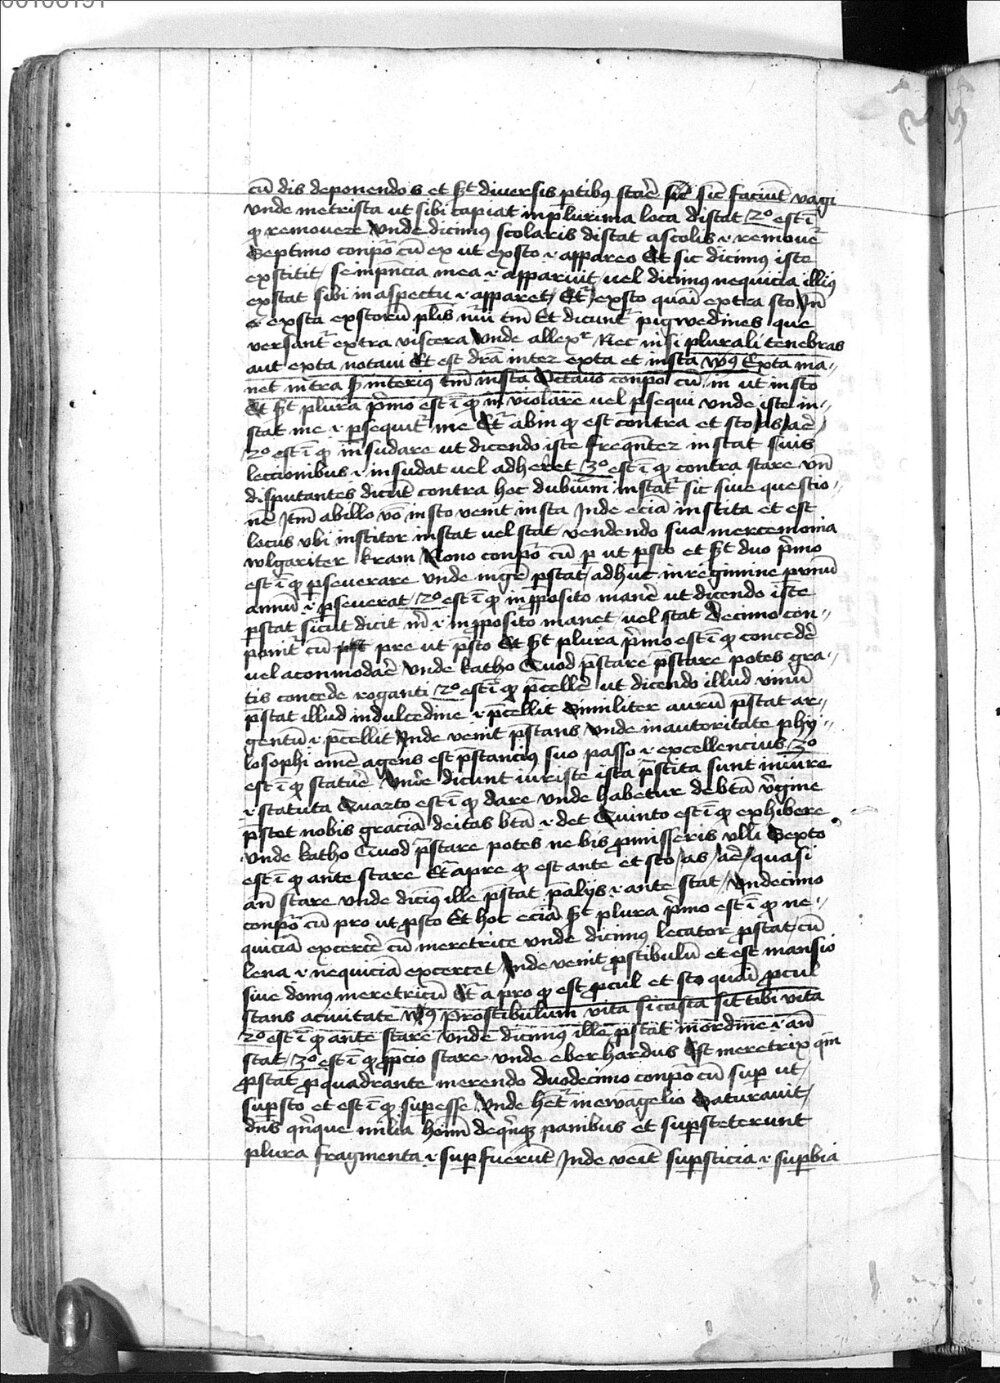 00100191
cū dis deponendo s et st̄ diversis ptibꝰ starē sic̄ faciūt vagi
vnde metrista ut sibi capiat in plurima loca distat 2º est ī
qͥ removere Vnde dicimꝰ scolaris distat a scolis ⁊ removeͬ
Septimo conpoͬ cū ex ut exsto ⁊ appareo Et sic dicimꝰ iste
exstitit se in pn̄cia mea ⁊ apparuit vel dicimꝰ nequicia illiꝰ
exstat sibi in aspectu ⁊ apparet Etͬ exsto quasi extra sto Vn̄
exsta exstorū plīs nūī tm̄ Et dicuntͬ pigwedines que
versantͬ extra viscera Vnde allexͬ Nec nisi plurali tenebras
aut exta notavi Et est drā inter exta et insta wꝰ Exta ma-
net in̄ tra sʒ interiꝰ tm̄ insta Octavo conpoͬ cū in ut insto
Et st̄ plura pͥmo est ī qͥ in violare vel psequi vnde iste in-
stat me ⁊ psequitͬ me Etͬ ab in qͥ est contra et sto as arē
2º est ī qͥ insudare ut dicendo iste frequēter instat suis
lectionibus ⁊ insudat vel adheret 3º est ī qͥ contra stare vn̄
disputantes dicūt contra hoc dubium instatͬ sic sive questio-
nē Itm̄ ab illo vō insto venit insta Inde eciā instita et est
locus vbi institor instat vel stat vendendo sua mercemonia
wlgariter kram Nono conpoͬ cū p ut psto et st̄ duo pͥmo
est ī qͥ pseverare vnde mgͬ pstat adhuc in regimine p vnū
annū ⁊ pseverat 2º est ī qͥ in pposito manē ut dicendo iste
pstat sicut dicit mͬ ⁊ in pposito manet vel stat Decimo con-
ponitͬ cū pre ut psto Et st̄ plura pͥmo est ī qͥ concedē
vel acomodāē Vnde katho Quod pstare pstare potes gra-
tis concede roganti 2º est ī qͥ pcellē ut dicendo illud vinū
pstat illud in dulcedine ⁊ pcellit Similiter aurū pstat ar-
gentū ⁊ pcellit Inde venit pstans Vnde in autoritate phy-
losophi ome agens est pstanciꝰ suo passo ⁊ excellencius 3º
est ī qͥ statuē Vnde dicunt iuriste ista pstita sunt in iure
⁊ statuta Quarto est ī qͥ dare vnde habetur de btā vͥgine
pstet nobis graciā deitas btā ⁊ det Quinto est ī qͥ exhibere
vnde katho Quod pstare potes ne bis pmisseris vlli Sexto
est ī qͥ ante stare Etͬ a pre qͥ est ante et sto as arē quasi
an̄ stare vnde dicimꝰ ille pstat p aliis ⁊ ante stat Vndecimo
conpoͬ cū pro ut psto Et hoc eciā st̄ plura pͥmo est ī qͥ ne-
quiciā excercē cū meretrice vnde dicimꝰ lecator pstat cū
lena ⁊ nequiciā excercet Inde venit pstibulū et est mansio
sive domꝰ meretricū Etͬ a pro qͥ est pcul et sto quasi pcul
stans a civitate wꝰ Prostibulum vita si casta sit tibi vita
2º est ī qͥ ante stare vnde dicimꝰ ille pstat in ordine ⁊ an̄
stat 3º est ī qͥ p pcio stare vnde eberhardus Est meretrix qm̄
pstat p quadrante merendo Duodecimo conpoͬ cū sup ut
supsto et est ī qͥ supesse Vnde hetͬ in ewāgelio Saturavit
dn̄s qn̄que milia hoīm de qn̄qʒ panibus et supsteterunt
plura fragmenta ⁊ supfuerūt Inde venit supsticia ⁊ supbia